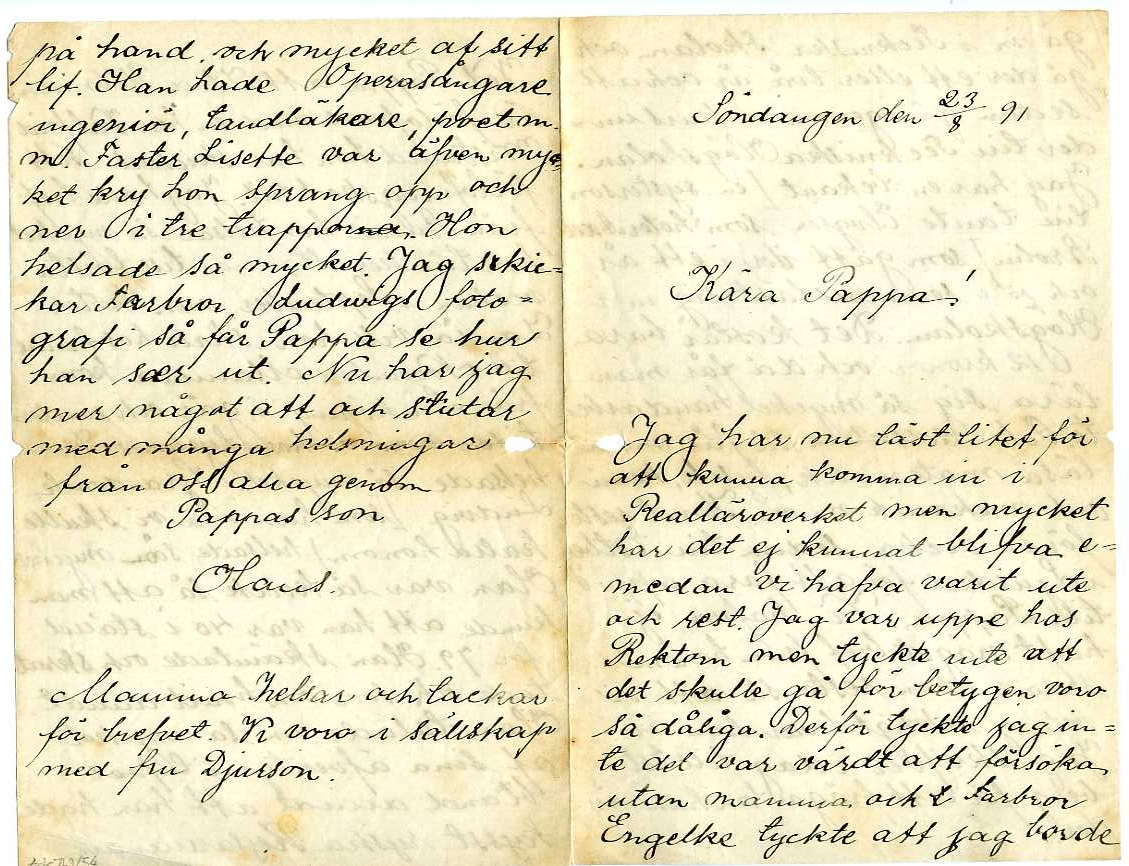 Söndangen den 23/8 91
Kära Pappa!
Jag har nu läst litet för
att kunna komma in i
Realläroverket men mycket
har det ej kunnat blifva e-
medan vi hafva varit ute
och rest. Jag var uppe hos
Rektorn men tyckte inte att
det skulle gå för betygen voro
så dåliga. Derför tyckte jag in=
te det var värdt att försöka
utan mamma och Farbror
Engelke tyckte att jag borde
på hand. och mycket af sitt
lif. Han hade Operasångare
ingeniör, tandläkare, poet m.
m. Faster Lisette var äfven myc=
ket kry hon sprang opp och
ner i tre trapporna. Hon
helsade så mycket. Jag skic=
kar Farbror Ludwigs foto=
grafi så får Pappa se hur
han sær ut. Nu har jag
mer något att och slutar
med många helsningar
från oss alla genom
Pappas son
Hans.
Mamma helsar och tackar
för brefvet. Vi voro i sällskap
med fru Djurson.